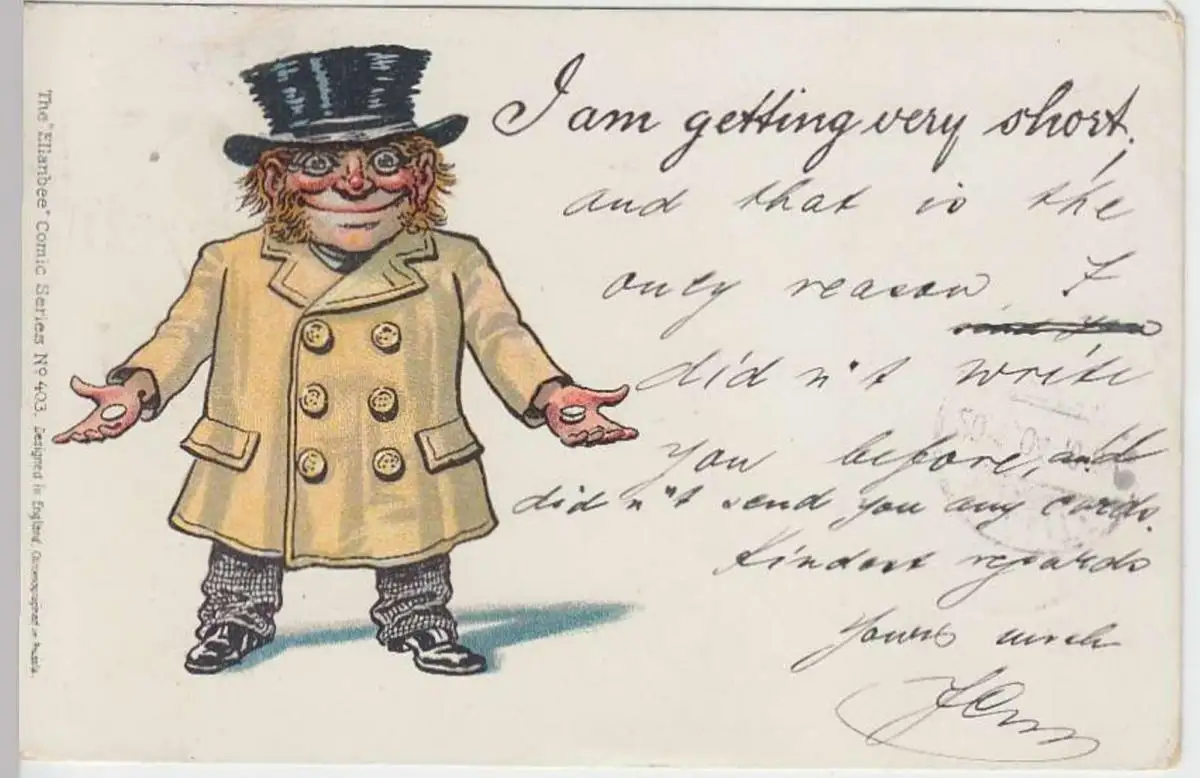 I am getting very short.
and that is the
only reason I
did n't write
you before, and
did n't send you any cards.
Kindest regards
Yours
The "Ellanbee" Comic Series Nº 403. Designed in England. Chromographed in Russia.